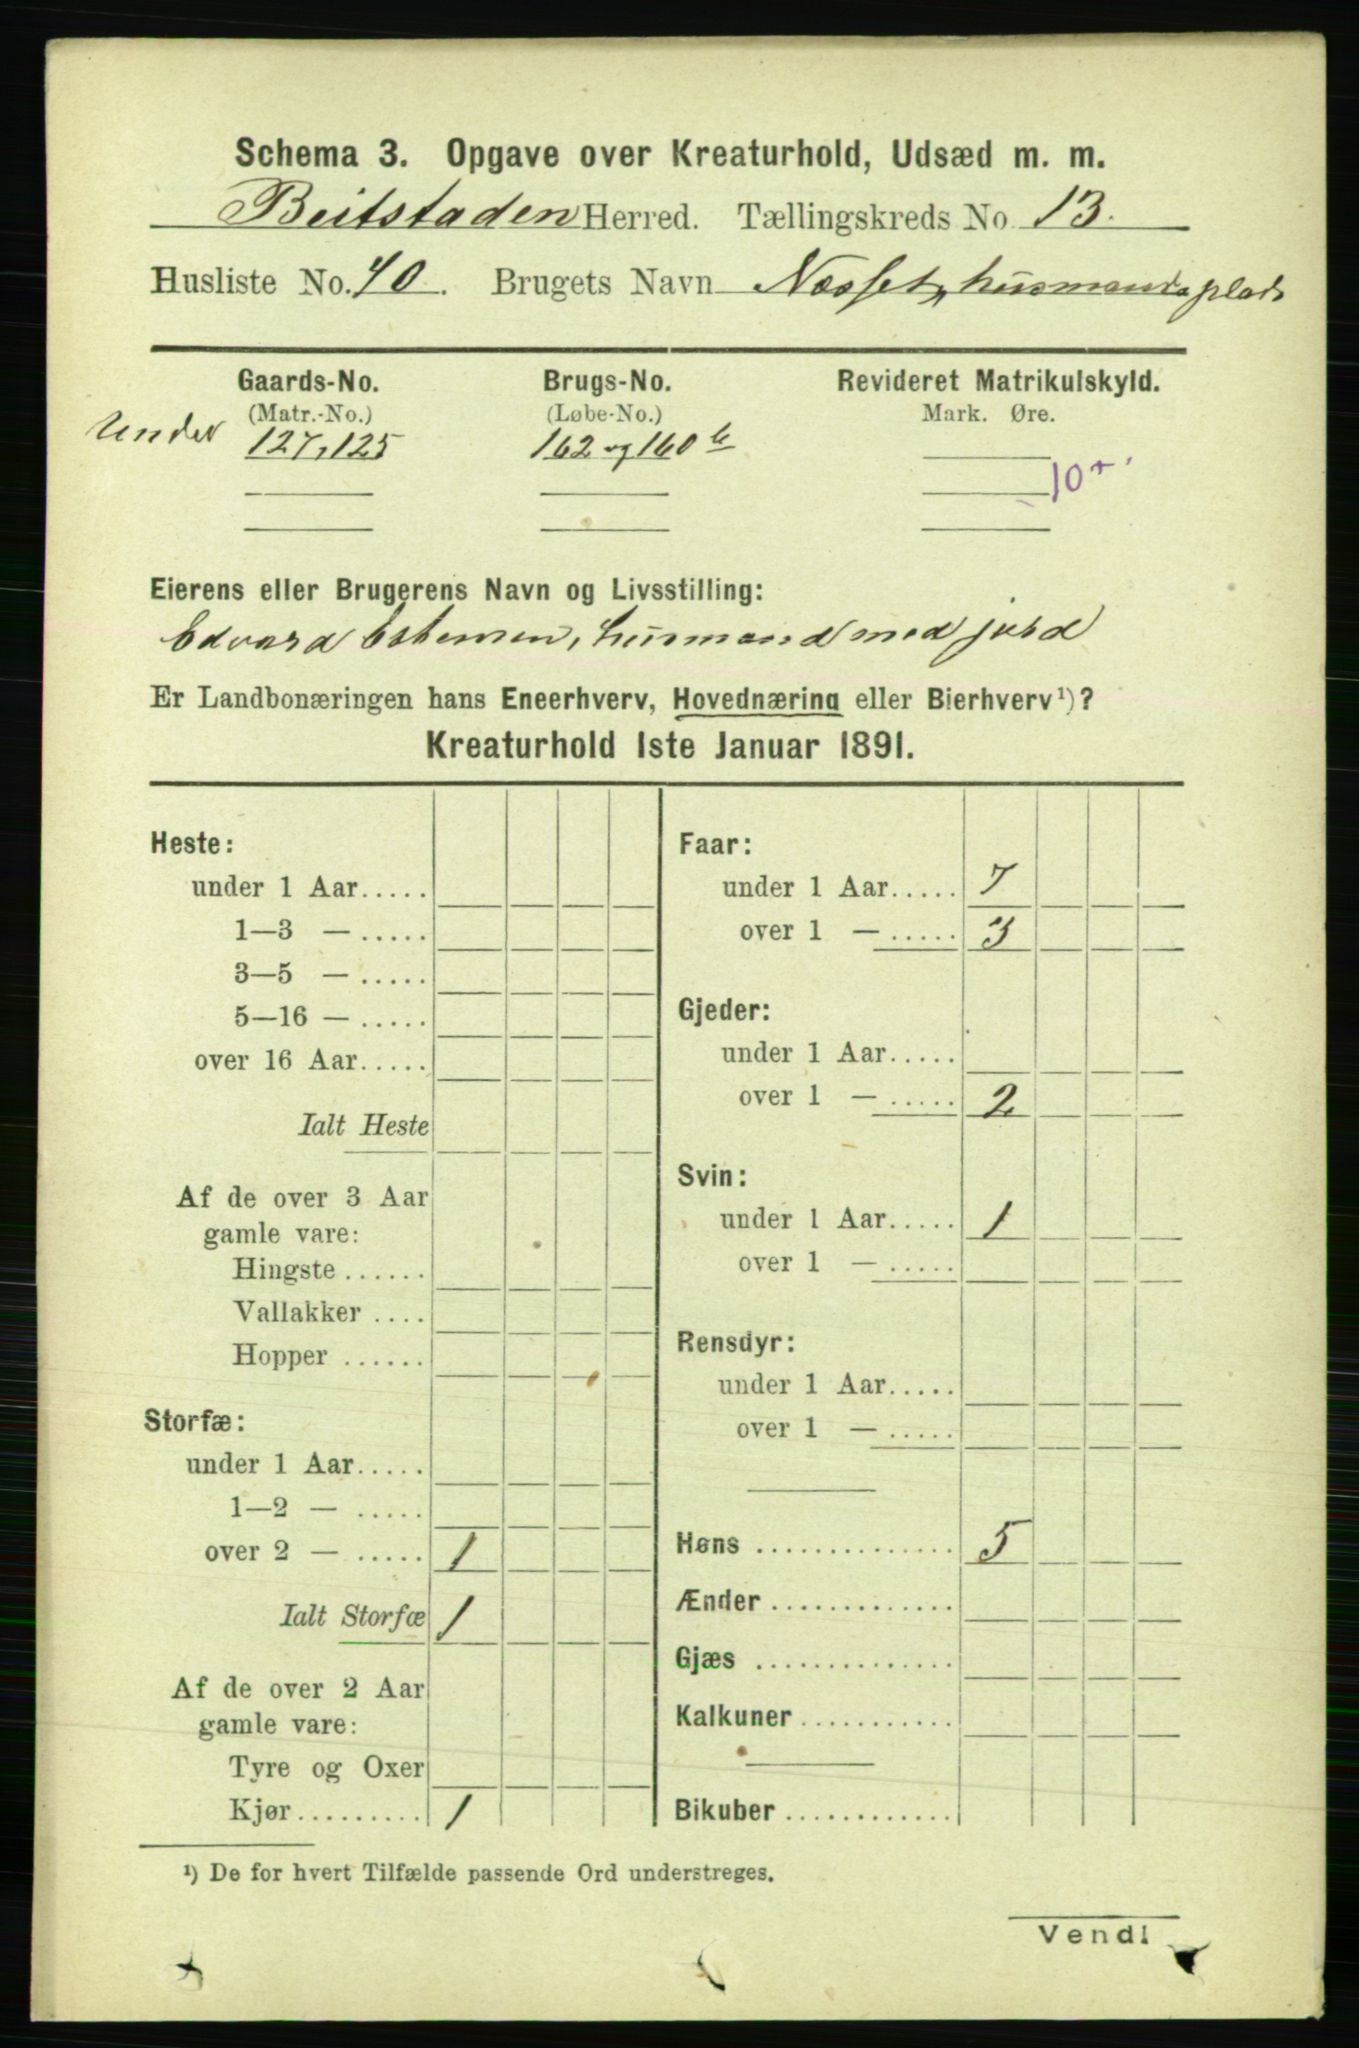 Schema 3. Opgave over Kreaturhold, Udsæd m. m.
Beitstaden Herred. Tællingskreds No. 13.
Husliste No. 40. Brugets Navn Næsset, husmandsplads
Gaards-No. Brugs-No. Revideret Matrikulskyld.
(Matr.-No.) (Løbe-No.) Mark. Øre.
Under 127, 125 162 og 160 b
10
Eierens eller Brugerens Navn og Livsstilling:
Edvard husmand med jord
Er Landbonæringen hans Eneerhverv, Hovednæring eller Bierhverv¹)?
Kreaturhold 1ste Januar 1891.
Heste:
under 1 Aar.....
1—3 — .....
3—5 — .....
5—16 — .....
over 16 Aar.....
Ialt Heste
Af de over 3 Aar
gamle vare:
Hingste ......
Vallakker ....
Hopper ......
Storfæ:
under 1 Aar.....
1—2 — .....
over 2 — ..... 1
Ialt Storfæ 1
Af de over 2 Aar
gamle vare:
Tyre og Oxer
Kjør ......... 1
Faar:
under 1 Aar..... 7
over 1 — ..... 3
Gjeder:
under 1 Aar.....
over 1 — ..... 2
Svin:
under 1 Aar..... 1
over 1 — .....
Rensdyr:
under 1 Aar.....
over 1 — .....
Høns .............. 5
Ænder .............
Gjæs ..............
Kalkuner ...........
Bikuber ............
¹) De for hvert Tilfælde passende Ord understreges.
Vend!